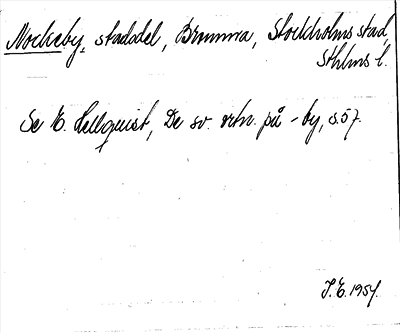 Nockeby, stadsdel, Bromma, Stockholms stad,
Sthlms l.
Se E. Hellquist, De sv. ortn. på -by, s. 57.
I.E. 1954.